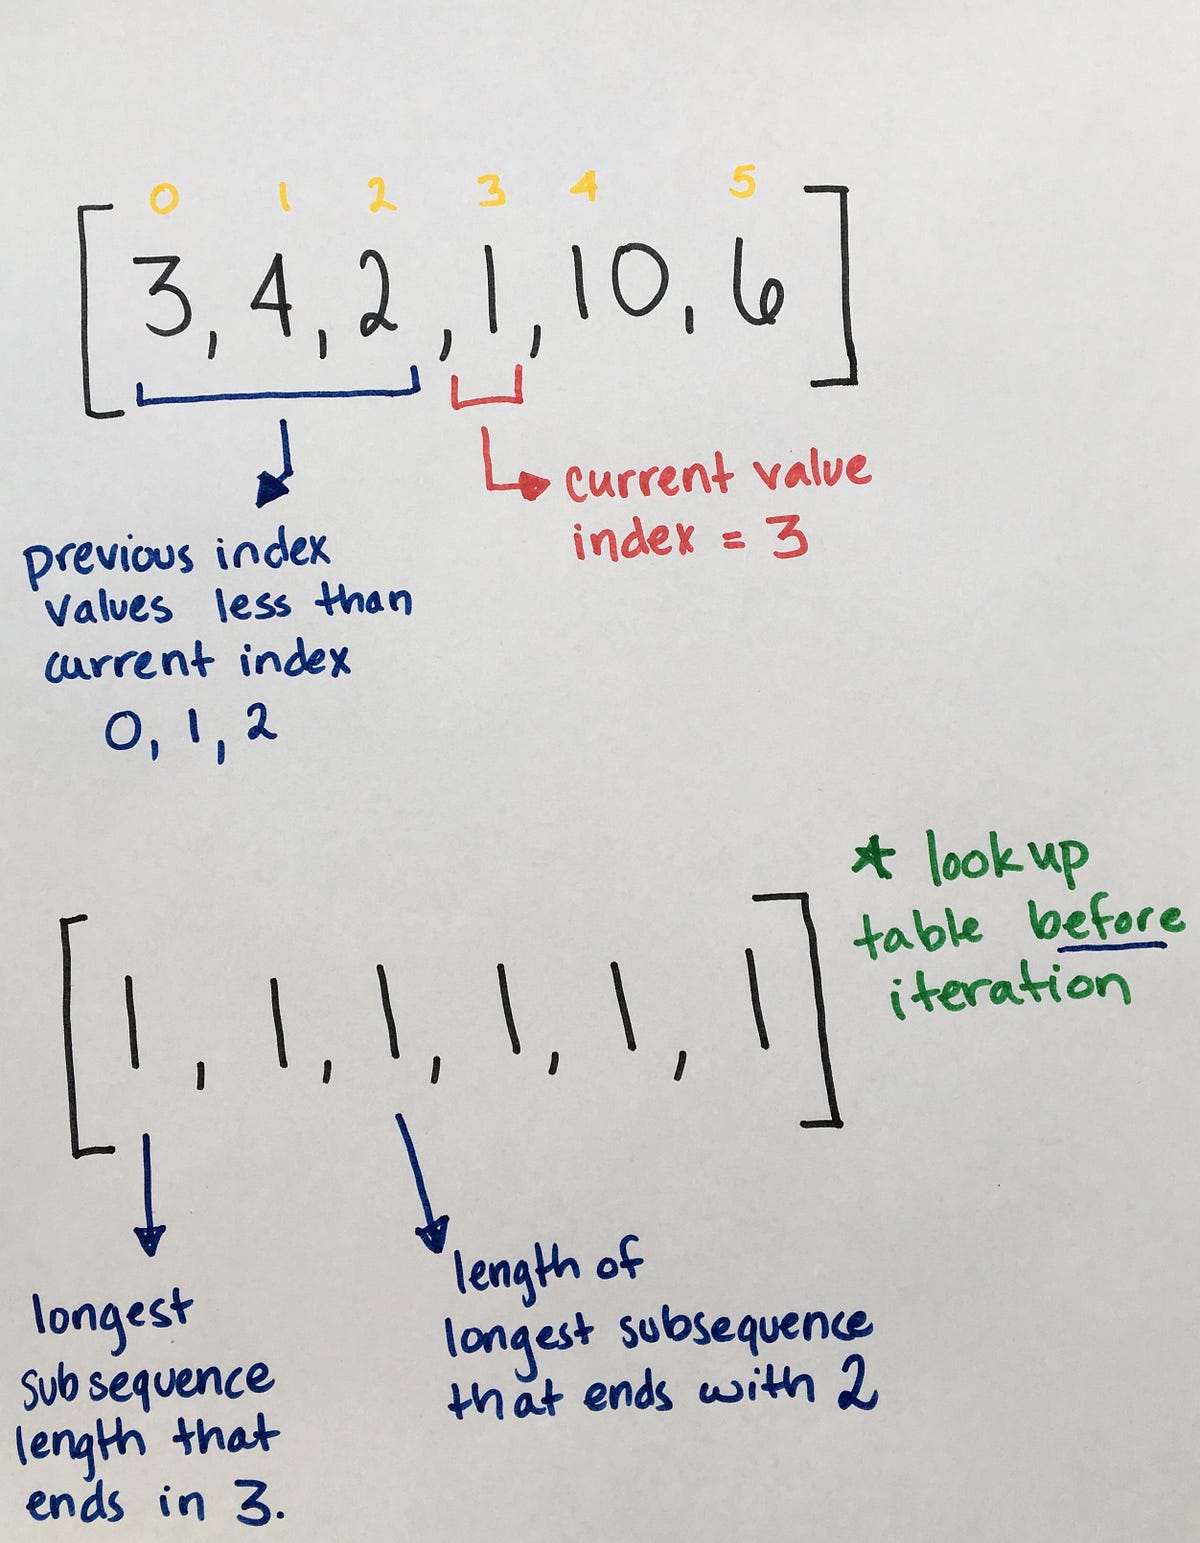 0 1 2 3 4 5
[3, 4, 2, 1, 10, 6]
current value
index = 3
previous index
values less than
current index
0, 1, 2
* lookup
table before
iteration
[1, 1, 1, 1, 1, 1]
longest
subsequence
length that
ends in 3.
length of
longest subsequence
that ends with 2